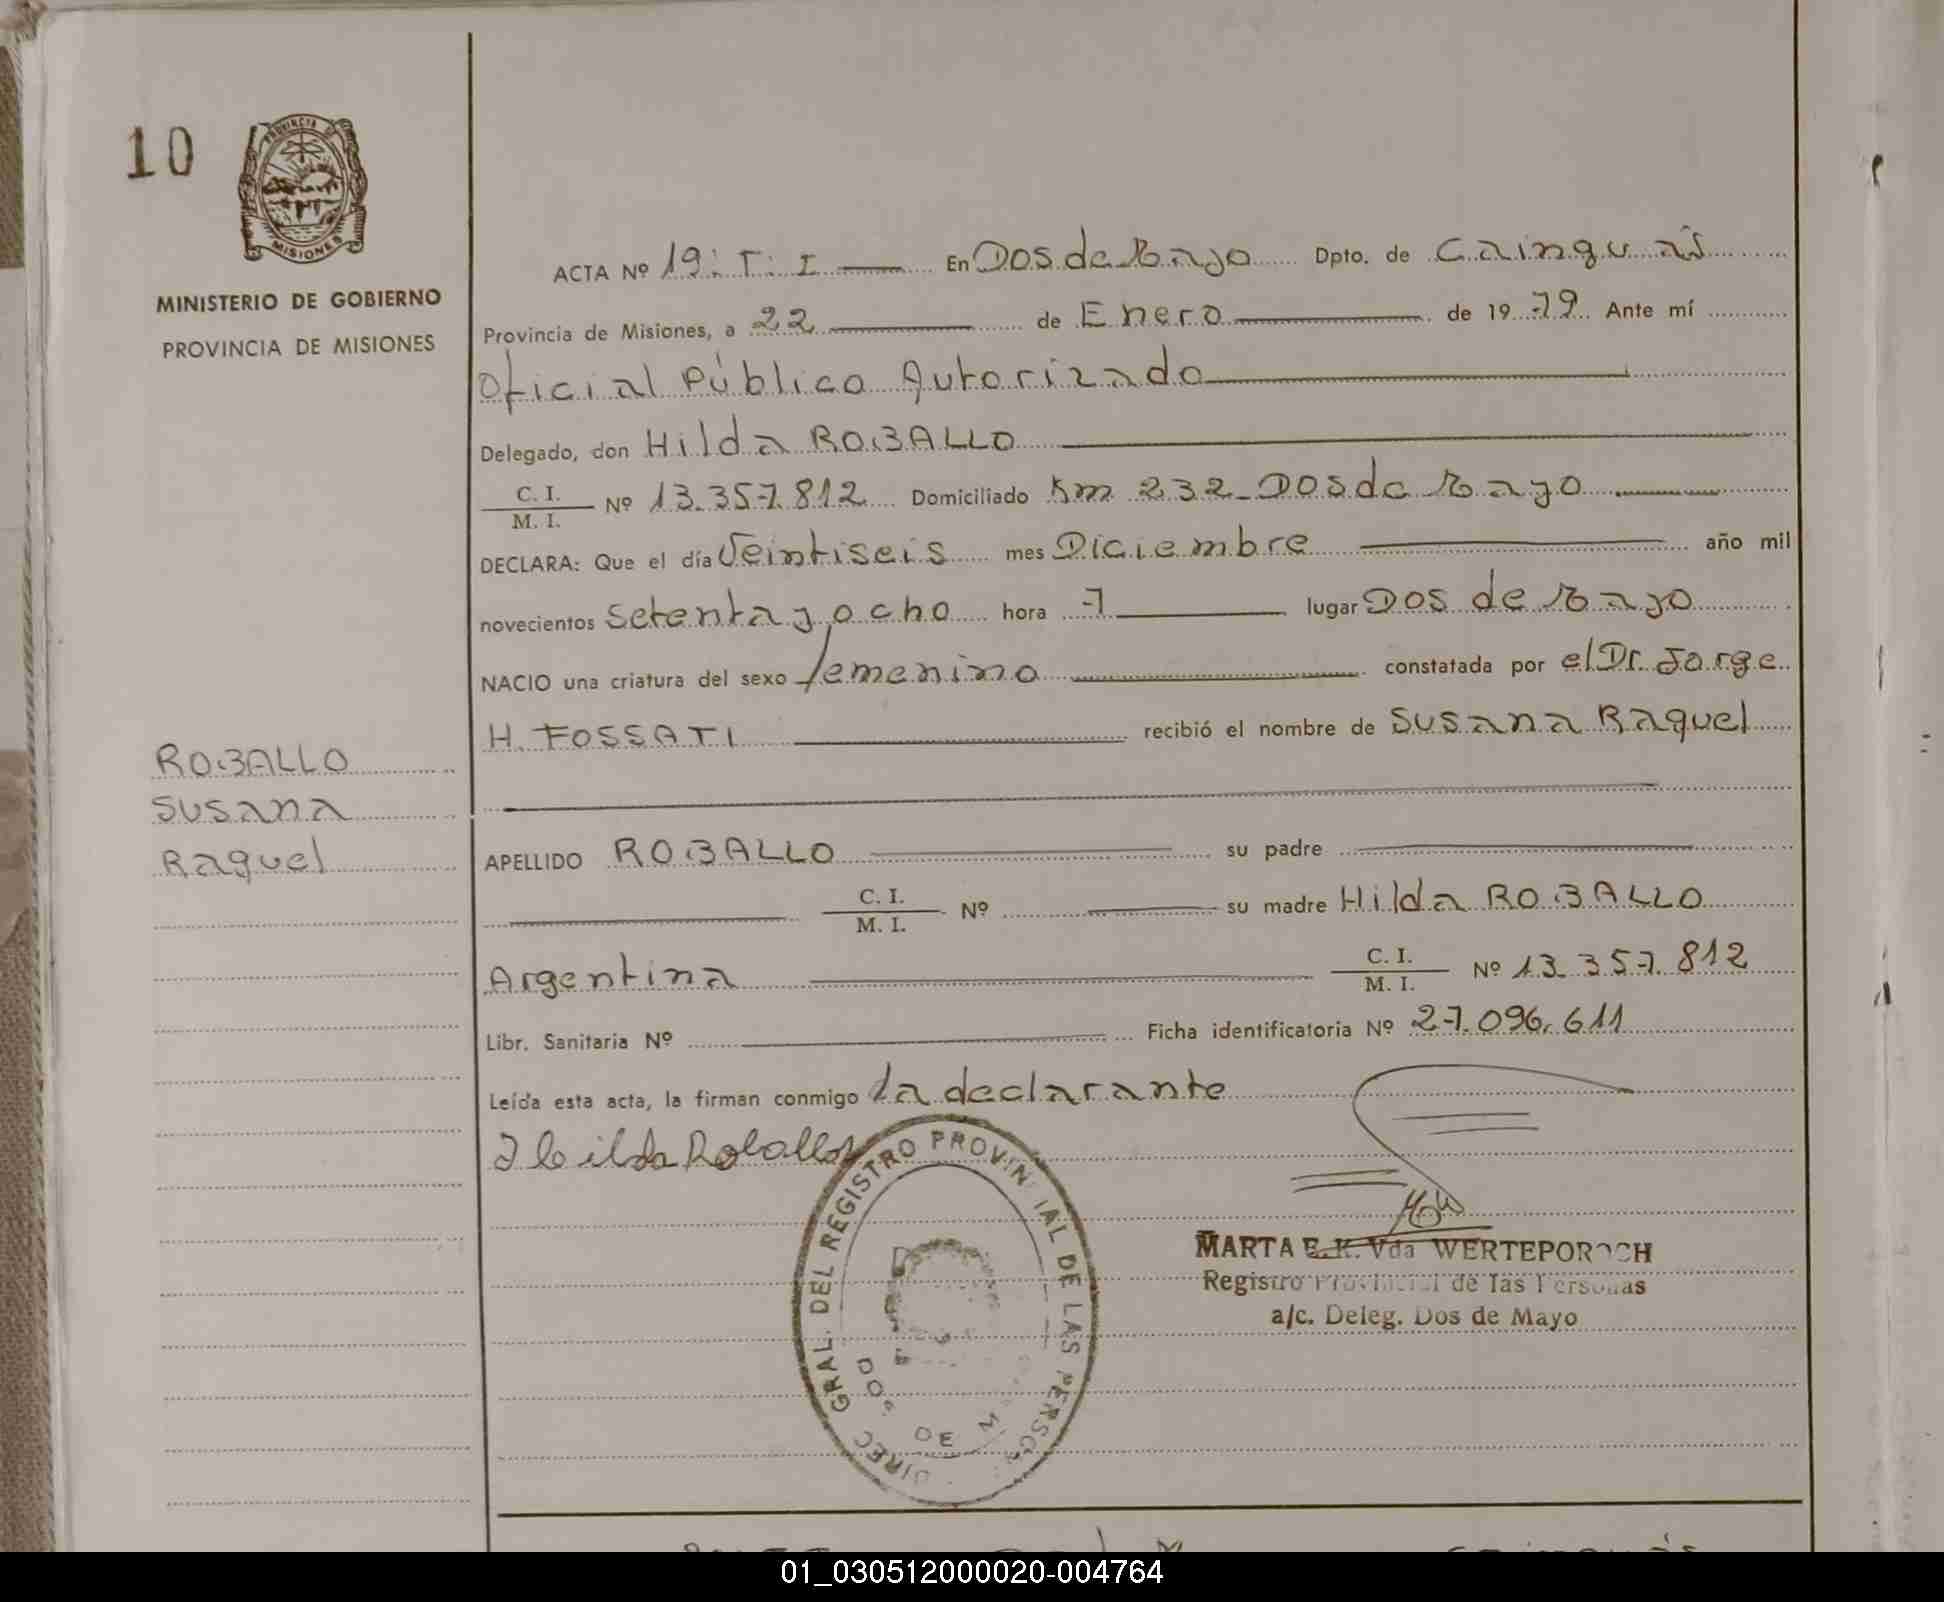 10
PROVINCIA DE
MISIONES
MINISTERIO DE GOBIERNO
PROVINCIA DE MISIONES
ACTA Nº 19: T: I En Dos de Mayo Dpto. de Cainguás
Provincia de Misiones, a 22 de Enero de 19 79 Ante mí
Oficial Público Autorizado
Delegado, don Hilda ROBALLO
C. I.
M. I. Nº 13.357.812 Domiciliado Km 232 - Dos de Mayo
DECLARA: Que el día Veintiseis mes Diciembre año mil
novecientos setenta y ocho hora 7 lugar Dos de Mayo
NACIO una criatura del sexo femenino constatada por el Dr. Jorge
H. FOSSATI recibió el nombre de Susana Raquel
ROBALLO
Susana
Raquel
APELLIDO ROBALLO su padre
C. I.
M. I. Nº su madre Hilda ROBALLO
Argentina C. I.
M. I. Nº 13.357.812
Libr. Sanitaria Nº Ficha identificatoria Nº 27.096.611
Leída esta acta, la firman conmigo la declarante
Hilda Roballo
DIREC GRAL. DEL REGISTRO PROVINCIAL DE LAS PERSO
DOS DE M
MARTA E. K. Vda WERTEPOROCH
Registro Provincial de las Personas
a/c. Deleg. Dos de Mayo
01_030512000020-004764